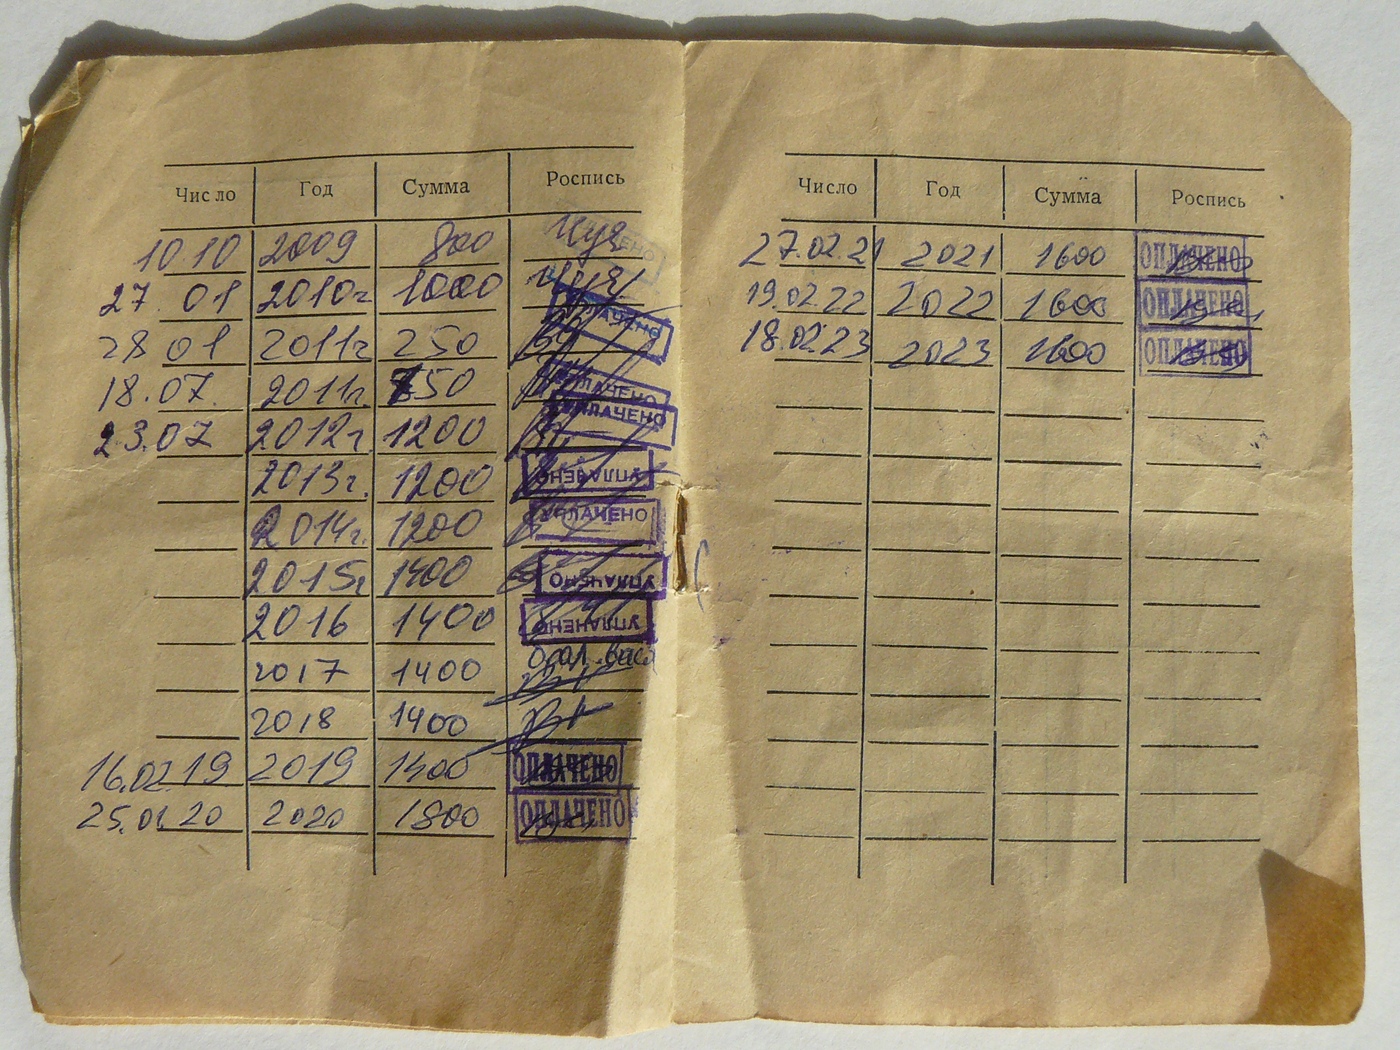 Число Год Сумма Роспись
10.10 2009 800
27.01 2010г 1000
28 01 2011г 250 УПЛАЧЕНО
18.07. 2011г. 750 УПЛАЧЕНО
23.07 2012г. 1200 УПЛАЧЕНО
2013г. 1200 УПЛАЧЕНО
2014г. 1200 УПЛАЧЕНО
2015г 1400 УПЛАЧЕНО
2016 1400 УПЛАЧЕНО
2017 1400
2018 1400
16.02.19 2019 1400 ОПЛАЧЕНО
25.01.20 2020 1800 ОПЛАЧЕНО
Число Год Сумма Роспись
27.02.21 2021 1600 ОПЛАЧЕНО
19.02.22 2022 1600 ОПЛАЧЕНО
18.02.23 2023 1600 ОПЛАЧЕНО